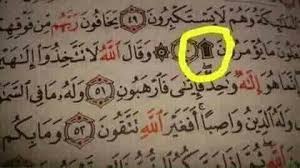 لملئكة وهم لا يستكبرون ٤٩ يخافون ربهم من فوقهم
ما يؤمرون ۩ ۞ وقال الله لا تتخذوا
نما هو إله وحد فإيى فارهبون ٥١ وله ما في
وله الدين واصبا أفغير الله تتقون ٥٢ وما بكم